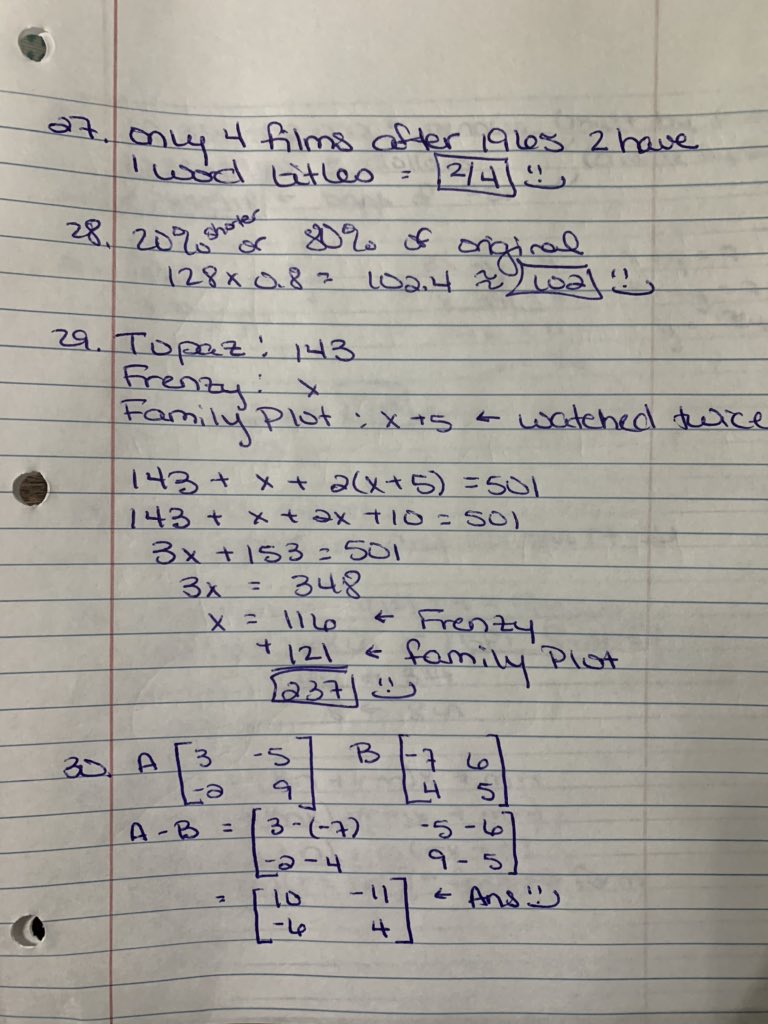 27. Only 4 films after 1965 2 have
1 word titles = 2/4
28. 20% shorter or 80% of original
128 x 0.8 = 102.4 ≈ 102
29. Topaz: 143
Frenzy: x
Family Plot: x+5 ← watched twice
143 + x + 2(x+5) = 501
143 + x + 2x + 10 = 501
3x + 153 = 501
3x = 348
x = 116 ← Frenzy
+ 121 ← family Plot
237
30. A [3 -5 B [-7 6
-2 9] 4 5]
A - B = [3-(-7) -5-6
-2-4 9-5]
= [10 -11 ← Ans
-6 4]